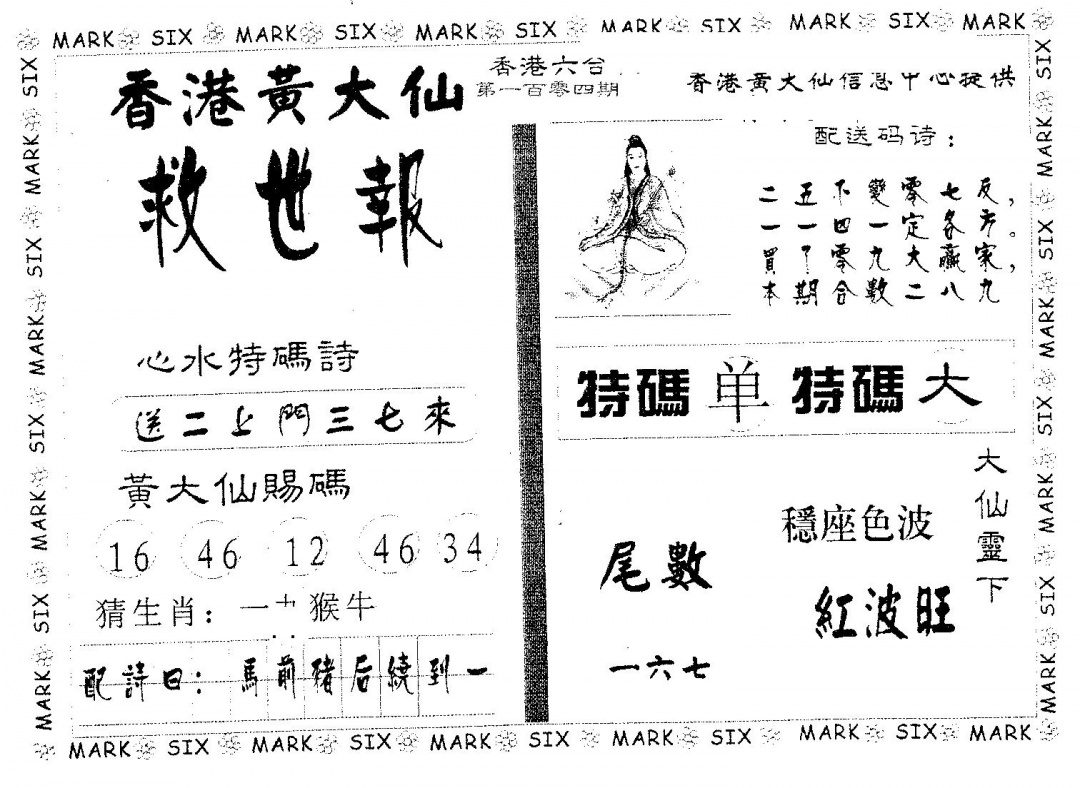 MARK SIX MARK SIX MARK SIX MARK SIX MARK SIX MARK
香港黃大仙
救世報
香港六台
第一百零四期
香港黄大仙信息中心提供
配送码诗：
二五不變零七反，
一一四一定各方。
買了零九大贏家，
本期合數二八九
心水特碼詩
送二上門三七來
黃大仙賜碼
16 46 12 46 34
猜生肖：一 猴牛
配詩曰：馬前豬后繞到一
特碼 単 特碼 大
大仙靈下
穩座色波
紅波旺
尾數
一六七
MARK SIX MARK SIX MARK SIX MARK SIX
MARK SIX MARK SIX MARK SIX MARK SIX
MARK SIX MARK SIX MARK SIX MARK SIX MARK SIX MARK